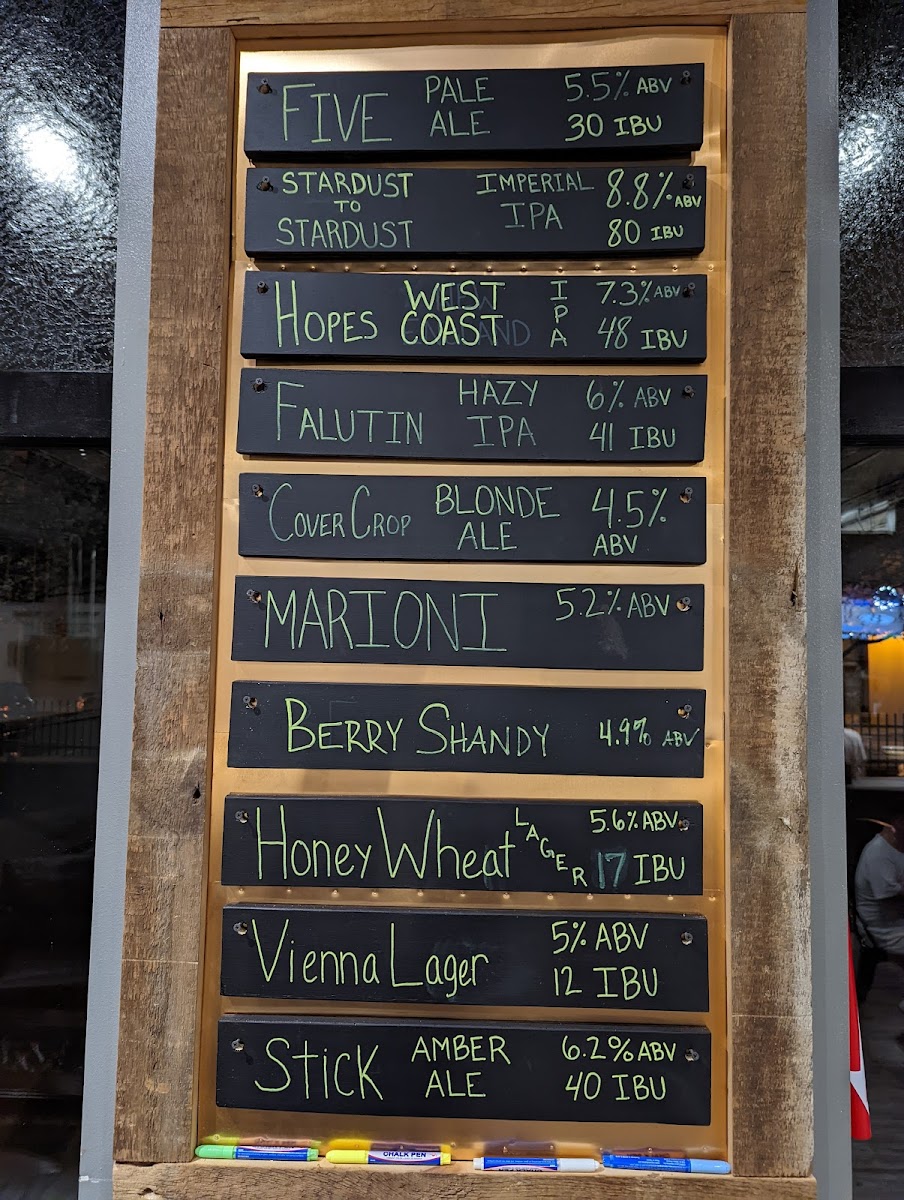 FIVE PALE ALE 5.5% ABV 30 IBU
STARDUST TO STARDUST IMPERIAL IPA 8.8% ABV 80 IBU
HOPES WEST COAST IPA 7.3% ABV 48 IBU
FALUTIN HAZY IPA 6% ABV 41 IBU
COVER CROP BLONDE ALE 4.5% ABV
MARIONI 5.2% ABV
BERRY SHANDY 4.9% ABV
Honey Wheat LAGER 5.6% ABV 17 IBU
Vienna Lager 5% ABV 12 IBU
Stick AMBER ALE 6.2% ABV 40 IBU
CHALK PEN